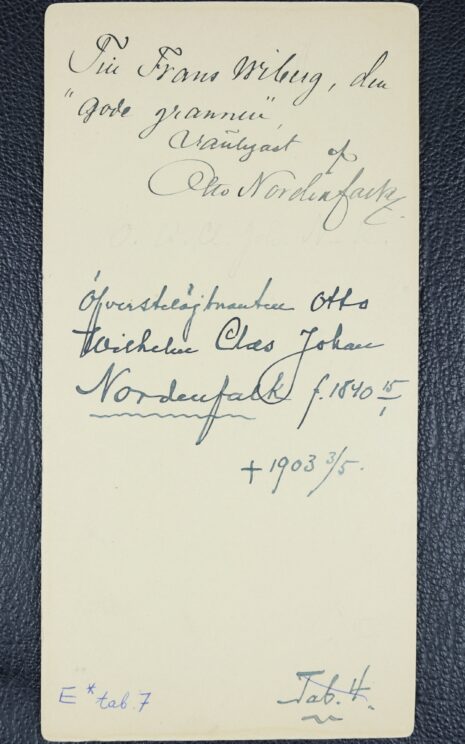 Till Frans Wiberg, den
"gode grannen",
vänligast af
Otto Nordenfalk.
Öfverstelöjtnanten Otto
Wilhelm Claes Johan
Nordenfalk f. 1840 15/1
+ 1903 3/5.
Tab. 4.
E* tab. 7